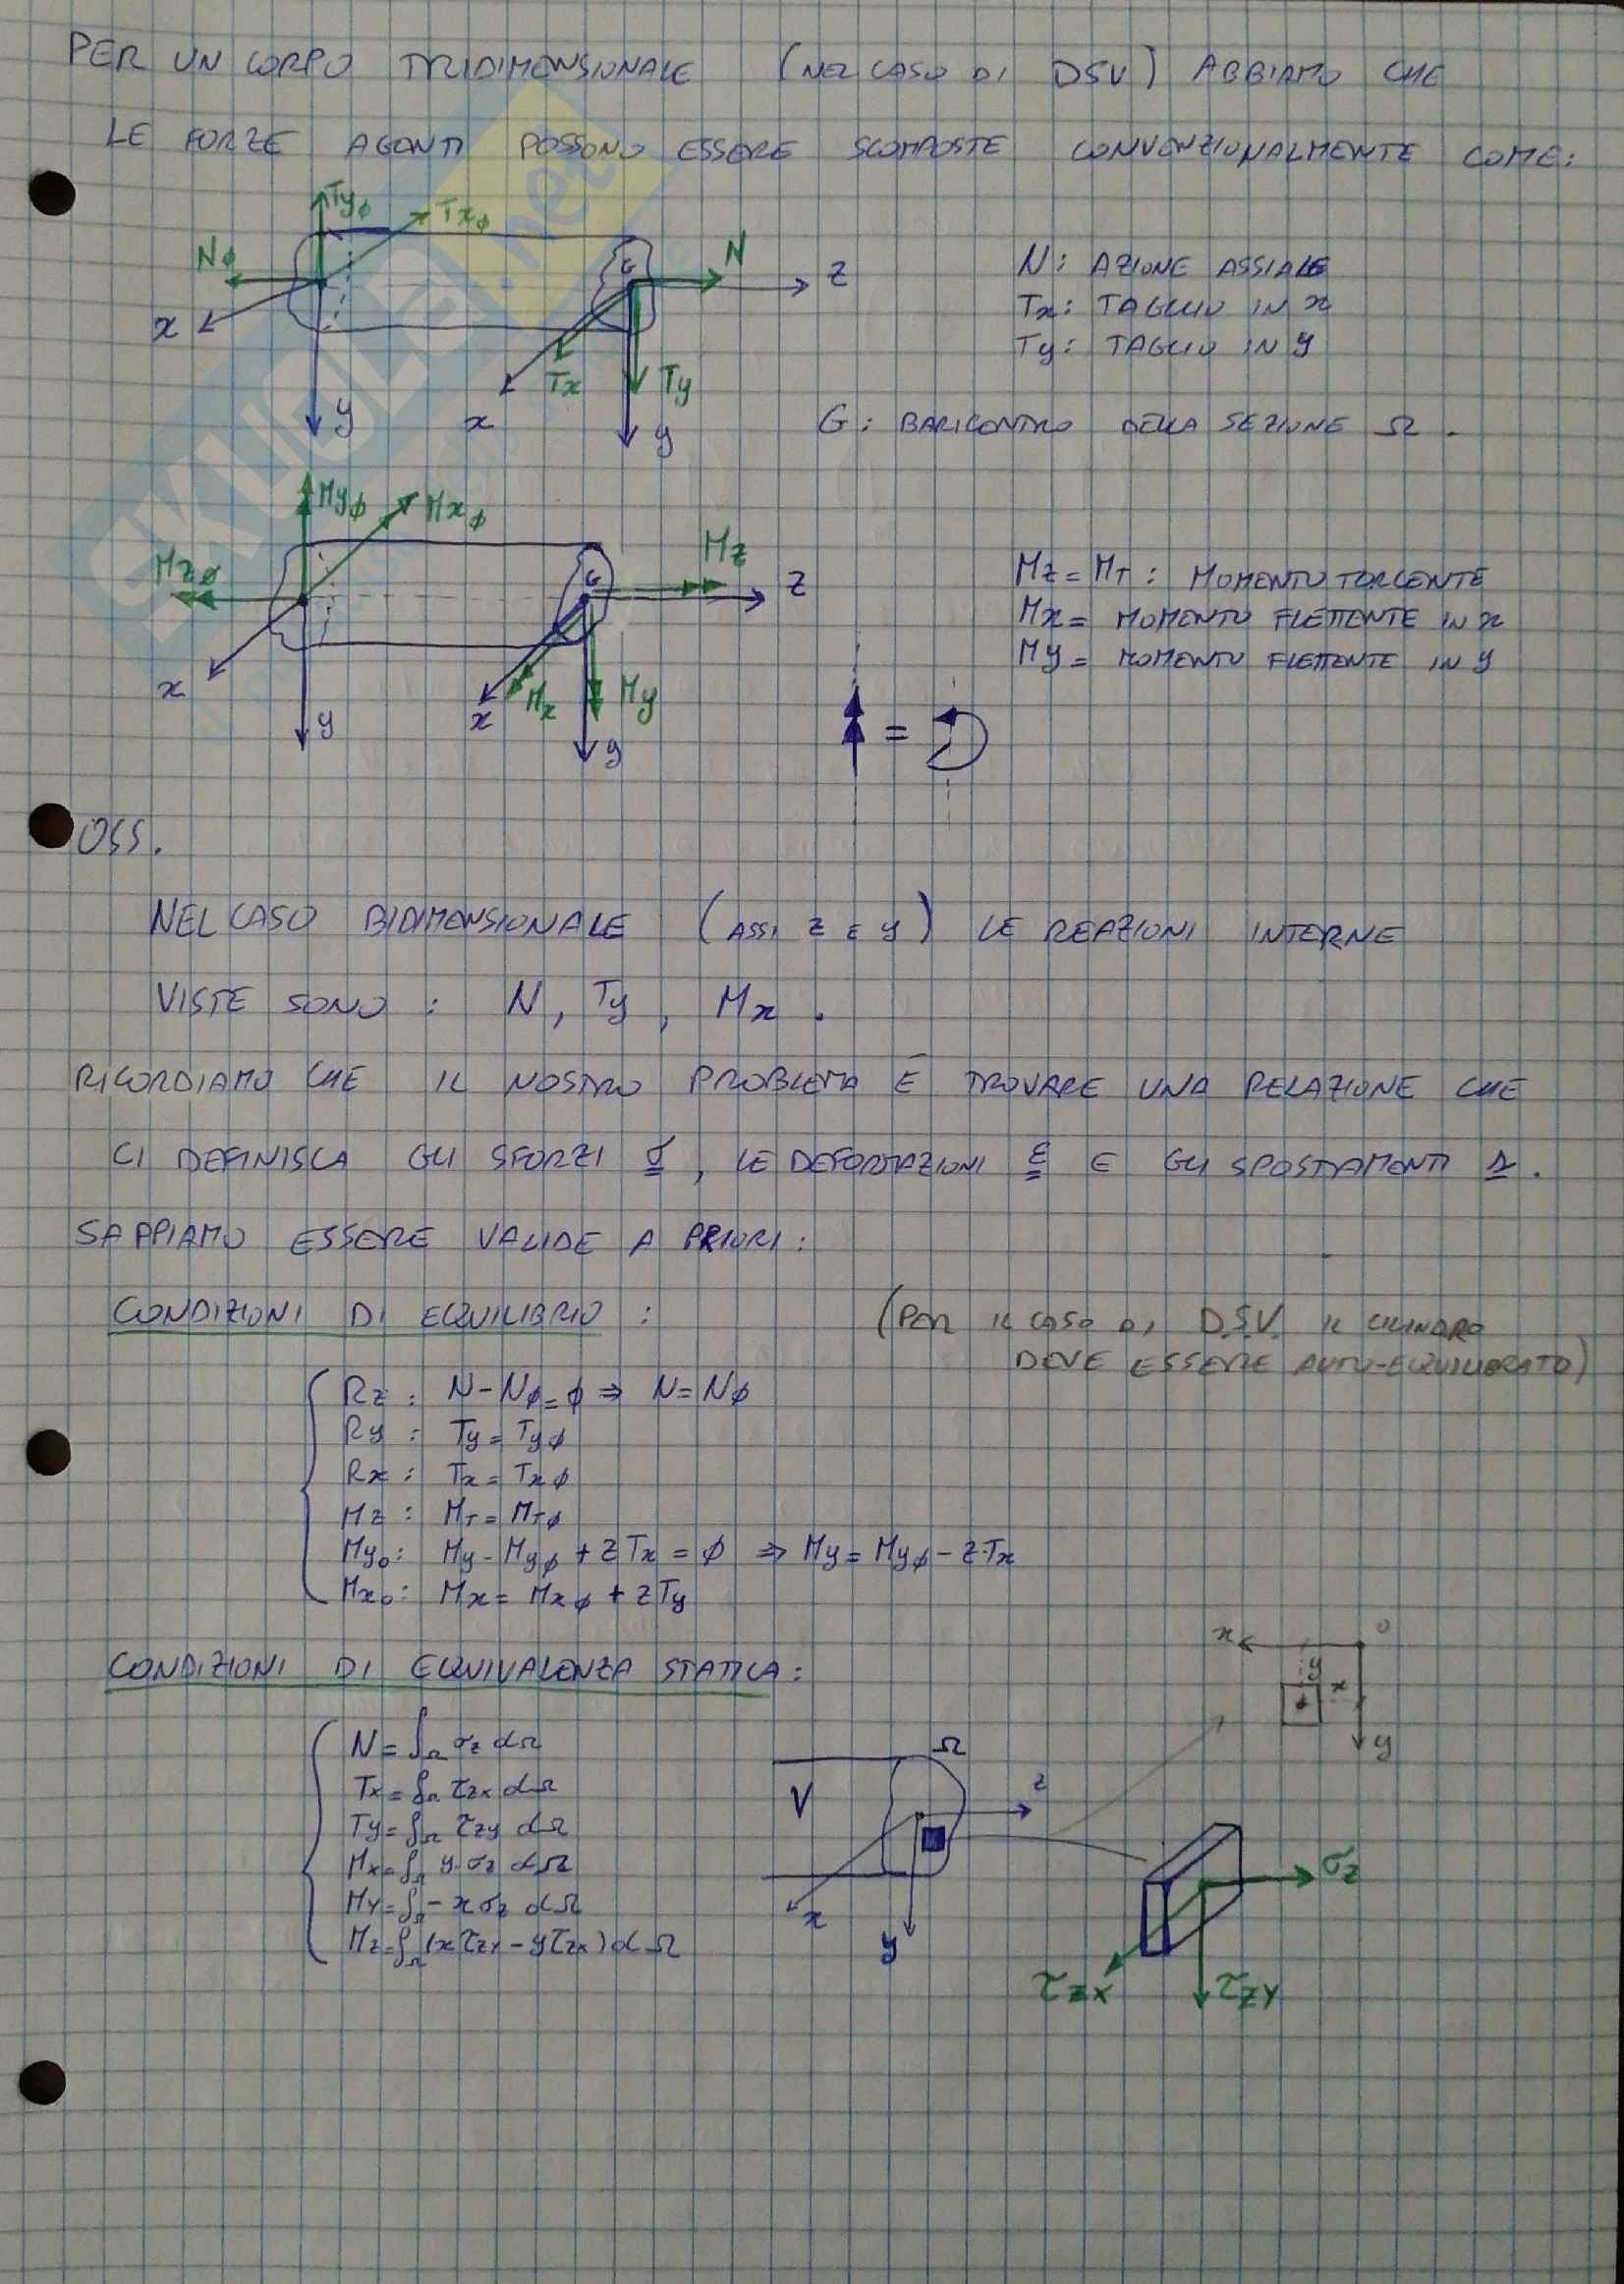 PER UN CORPO TRIDIMENSIONALE (NEL CASO DI DSV) ABBIAMO CHE
LE FORZE AGENTI POSSONO ESSERE SCOMPOSTE CONVENZIONALMENTE COME:
Tyφ
Txφ
Nφ
N
G
z
x
Tx
Ty
y
x
y
N: AZIONE ASSIALE
Tx: TAGLIO IN x
Ty: TAGLIO IN y
G: BARICENTRO DELLA SEZIONE Ω.
Myφ
Mxφ
Mzφ
Mz
G
z
x
Mx
My
y
x
y
Mz = MT: MOMENTO TORCENTE
Mx = MOMENTO FLETTENTE IN x
My = MOMENTO FLETTENTE IN y
=
OSS.
NEL CASO BIDIMENSIONALE (ASSI z E y) LE REAZIONI INTERNE
VISTE SONO: N, Ty, Mx.
RICORDIAMO CHE IL NOSTRO PROBLEMA È TROVARE UNA RELAZIONE CHE
CI DEFINISCA GLI SFORZI σ, LE DEFORMAZIONI ε E GLI SPOSTAMENTI s.
SAPPIAMO ESSERE VALIDE A PRIORI:
CONDIZIONI DI EQUILIBRIO:
(PER IL CASO DI D.S.V. IL CILINDRO
DEVE ESSERE AUTO-EQUILIBRATO)
Rz: N-Nφ=φ ⇒ N=Nφ
Ry: Ty=Tyφ
Rx: Tx=Txφ
Mz: MT=MTφ
Myo: My-Myφ+zTx=φ ⇒ My=Myφ-z·Tx
Mxo: Mx=Mxφ+zTy
CONDIZIONI DI EQUIVALENZA STATICA:
N=∫Ω σz dΩ
Tx=∫Ω τzx dΩ
Ty=∫Ω τzy dΩ
Mx=∫Ω y·σz dΩ
My=∫Ω -xσz dΩ
Mz=∫Ω(xτzy-yτzx)dΩ
x
o
y
x
y
Ω
V
z
x
y
σz
τzx
τzy
SKUOLA.net